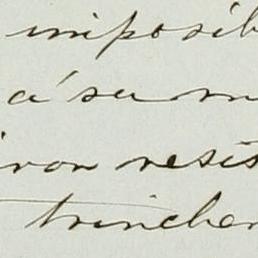 imposib
á su m
iron resis
trincher